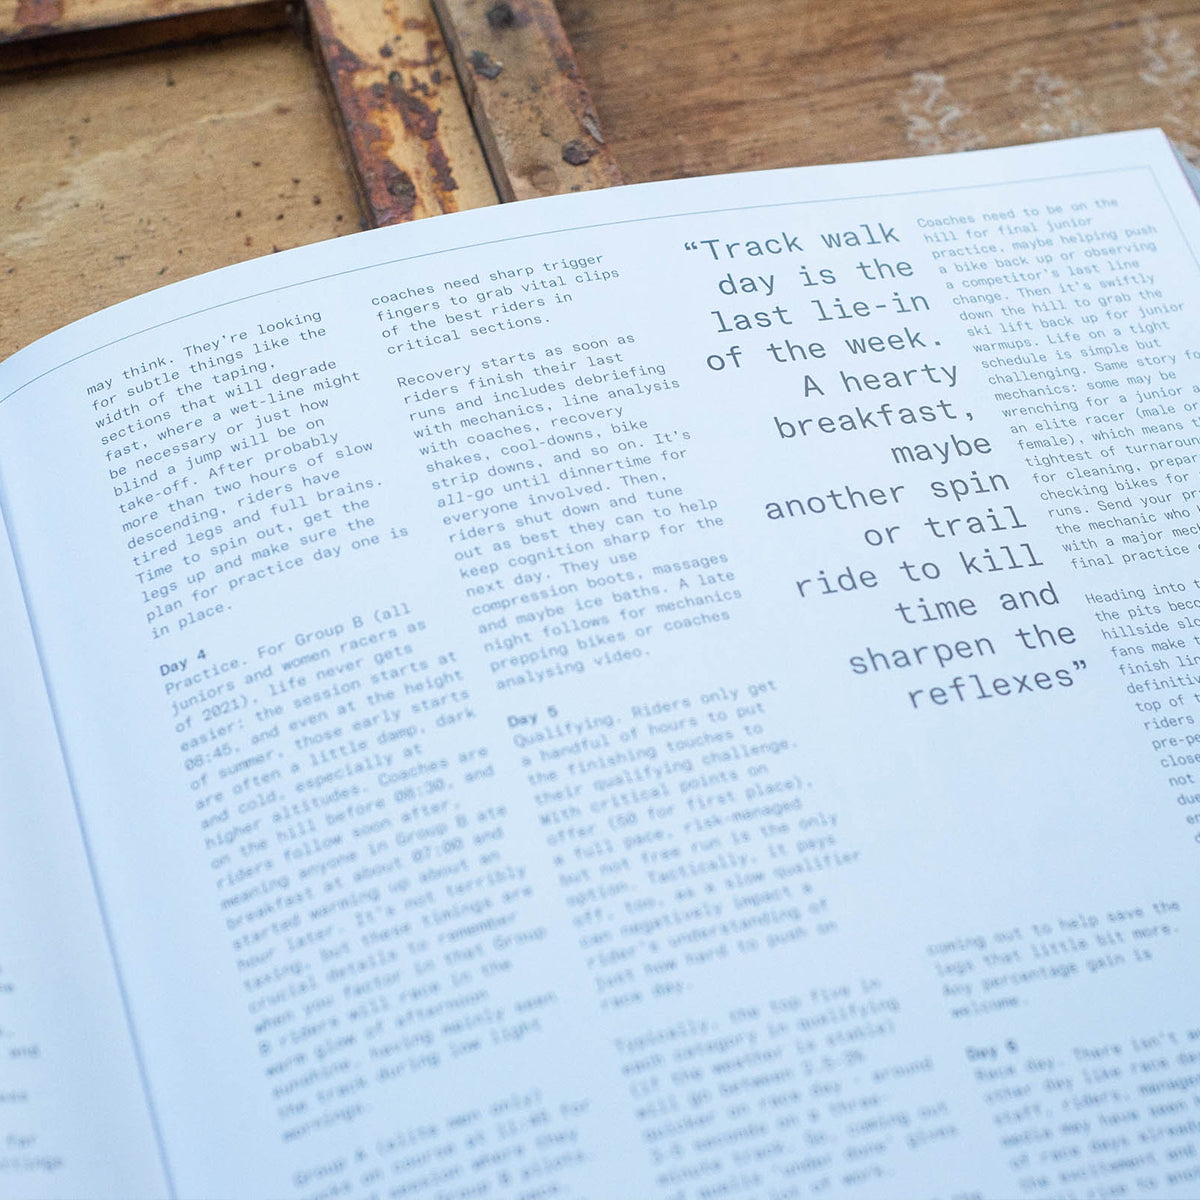 may think. They're looking
for subtle things like the
width of the taping,
sections that will degrade
fast, where a wet-line might
be necessary or just how
blind a jump will be on
take-off. After probably
more than two hours of slow
descending, riders have
tired legs and full brains.
Time to spin out, get the
legs up and make sure the
plan for practice day one is
in place.
Day 4
Practice. For Group B (all
juniors and women racers as
of 2021), life never gets
easier: the session starts at
08:45, and even at the height
of summer, those early starts
are often a little damp, dark
and cold, especially at
higher altitudes. Coaches are
on the hill before 08:30, and
riders follow soon after,
meaning anyone in Group B ate
breakfast at about 07:00 and
started warming up about an
hour later. It's not terribly
taxing, but these timings are
crucial details to remember
when you factor in that Group
B riders will race in the
warm glow of afternoon
sunshine, having mainly seen
the track during low light
mornings.
Group A (elite men only)
on course at 11:45 for
session where they
coaches need sharp trigger
fingers to grab vital clips
of the best riders in
critical sections.
Recovery starts as soon as
riders finish their last
runs and includes debriefing
with mechanics, line analysis
with coaches, recovery
shakes, cool-downs, bike
strip downs, and so on. It's
all-go until dinnertime for
everyone involved. Then,
riders shut down and tune
out as best they can to help
keep cognition sharp for the
next day. They use
compression boots, massages
and maybe ice baths. A late
night follows for mechanics
prepping bikes or coaches
analysing video.
Day 5
Qualifying. Riders only get
a handful of hours to put
the finishing touches to
their qualifying challenge.
With critical points on
offer (50 for first place),
a full pace, risk-managed
but not free run is the only
option. Tactically, it pays
off, too, as a slow qualifier
can negatively impact a
rider's understanding of
just how hard to push on
race day.
Typically, the top five in
each category in qualifying
(if the weather is stable)
will go between
quicker on race day - around
seconds on a three-
minute track. So, coming out
of qualis 'under done' gives
lot of work.
“Track walk
day is the
last lie-in
of the week.
A hearty
breakfast,
maybe
another spin
or trail
ride to kill
time and
sharpen the
reflexes”
Coaches need to be on the
hill for final junior
practice, maybe helping push
a bike back up or observing
a competitor's last line
change. Then it's swiftly
down the hill to grab the
ski lift back up for junior
warmups. Life on a tight
schedule is simple but
challenging. Same story fo
mechanics: some may be
wrenching for a junior a
an elite racer (male o
female), which means t
tightest of turnaroun
for cleaning, prepar
checking bikes for
runs. Send your pr
the mechanic who
with a major mec
final practice
Heading into t
the pits beco
hillside slo
fans make t
finish lin
definitiv
top of
riders
pre-pe
close
not
due
coming out to help save the
legs that little bit more.
Any percentage gain is
welcome.
Day 6
Race day. There isn't
other day like race da
staff, riders, manage
media may have seen
of race days alread
the excitement and